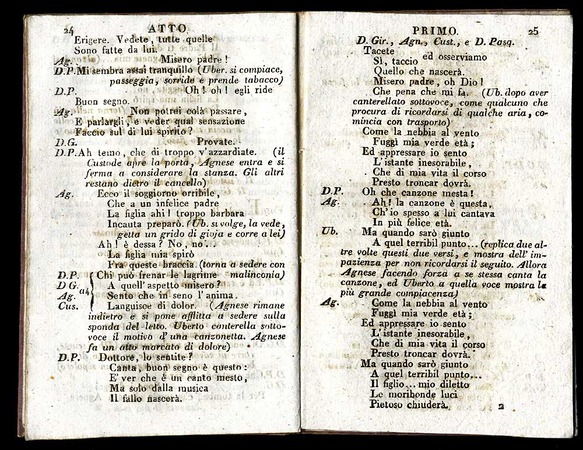 24 ATTO
Erigere. Vedete, tutte quelle
Sono fatte da lui.
Ag. Misero padre!
D.P. Mi sembra assai tranquillo (Uber. si compiace,
passeggia, sorride e prende tabacco)
D.P. Oh! oh! egli ride
Buon segno.
Ag. Non potrei colà passare,
E parlargli, e veder qual sensazione
Faccio sul di lui spirito?
D.G. Provate.
D.P. Ah temo, che di troppo v'azzardiate. (il
Custode apre la porta, Agnese entra e si
ferma a considerare la stanza. Gli altri
restano dietro il cancello)
Ag. Ecco il soggiorno orribile,
Che a un infelice padre
La figlia ahi! troppo barbara
Incauta preparò. (Ub. si volge, la vede,
getta un grido di gioja e corre a lei)
Ah! è dessa? No, no..
La figlia mia spirò
Fra queste braccia (torna a sedere con
D.P. Chi può frenar le lagrime malinconia)
D G. A quell'aspetto misero?
a4
Ag. Sento che in seno l'anima,
Cus. Languisce di dolor. (Agnese rimane
indietro e si pone afflitta a sedere sulla
sponda del letto. Uberto canterella sotto-
voce il motivo d'una canzonetta. Agnese
fa un atto marcato di dolore)
D.P. Dottore, lo sentite?
Canta, buon segno è questo:
E' ver che é un canto mesto,
Ma solo dalla musica
Il fallo nascerà.
PRIMO. 25
D. Gir., Agn., Cust., e D. Pasq.
Tacete
ed osserviamo
Sì, taccio
Quello che nascerà.
Misero padre, oh Dio!
Che pena che mi fa. (Ub. dopo aver
canterellato sottovoce, come qualcuno che
procura di ricordarsi di qualche aria, co-
mincia con trasporto)
Come la nebbia al vento
Fuggì mia verde età;
Ed appressare io sento
L'istante inesorabile,
Che di mia vita il corso
Presto troncar dovrà.
D.P. Oh che canzone mesta!
Ag. Ah! la canzone è questa,
Ch'io spesso a lui cantava
In più felice età.
Ub. Ma quando sarò giunto
A quel terribil punto... (replica due al-
tre volte questi due versi, e mostra dell'im-
pazienza per non ricordarsi il seguito. Allora
Agnese facendo forza a se stessa canta la
canzone, ed Uberto a quella voce mostra la
più grande compiacenza)
Ag. Come la nebbia al vento
Fuggì mia verde età;
Ed appressare io sento
L'istante inesorabile,
Che di mia vita il corso
Presto troncar dovrà.
Ma quando sarò giunto
A quel terribil punto...
Il figlio... mio diletto
Le moribonde luci
Pietoso chiuderà. 2